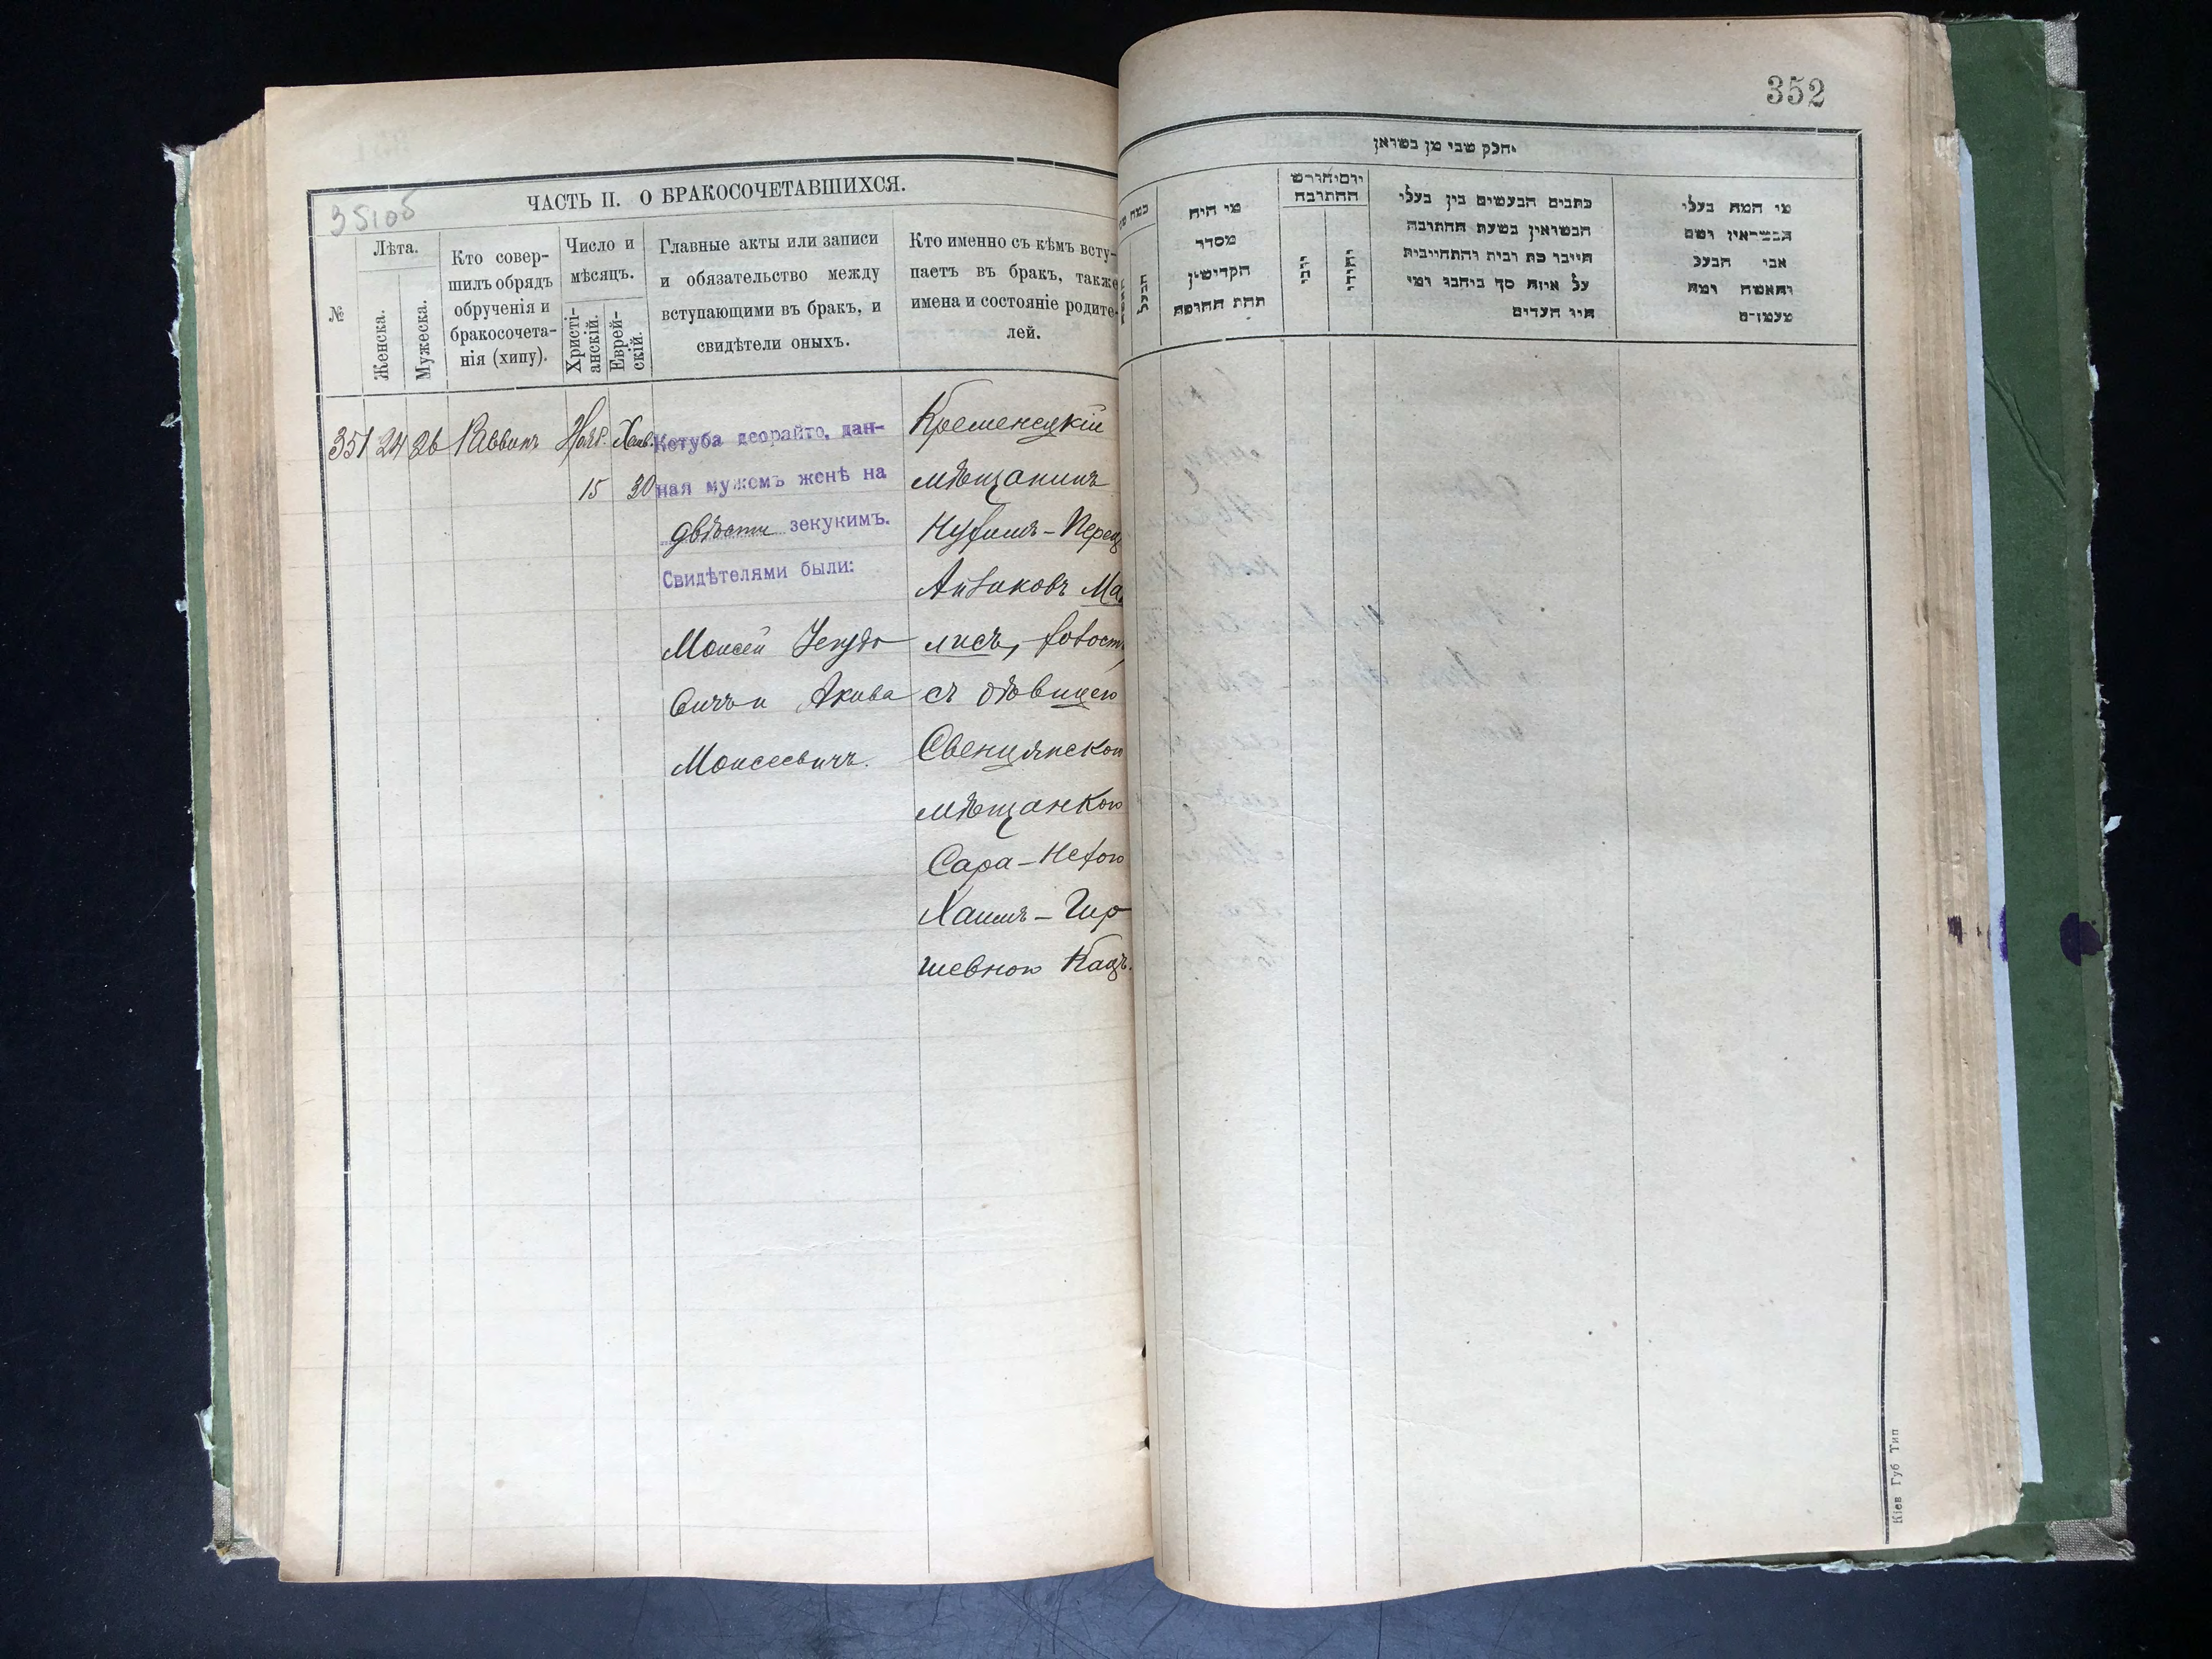 351об
ЧАСТЬ II. О БРАКОСОЧЕТАВШИХСЯ.
№
Лѣта.
Женска.
Мужеска.
Кто совер-
шилъ обрядъ
обрученія и
бракосочета-
нія (хипу).
Число и
мѣсяцъ.
Христі-
анскій.
Еврей-
скій.
Главные акты или записи
и обязательство между
вступающими въ бракъ, и
свидѣтели оныхъ.
Кто именно съ кѣмъ всту-
паетъ въ бракъ, также
имена и состояніе родите-
лей.
351 24 26 Раввинъ Нояб. Хешв.
15 30
Кетуба деорайто, дан-
ная мужемъ женѣ на
двѣсти зекукимъ.
Свидѣтелями были:
Моисей
Акива
Моисеевичъ.
Кременецкій
мѣщанинъ
Нухимъ-Перец
Айзиковъ Ма
лисъ, холост
съ дѣвицею
Свенцянскою
мѣщанкою
Сара-Нехою
Хаимъ-Гир
шевною Кацъ.
352
חלק שני מן נשואין
מי היה
מסדר
הקדושין
תחת החופה
יום וחודש
החתונה
נוצרי
יהודי
הבעל
האשה
כתבים הנעשים בין בעלי
הנשואין בשעת החתונה
חיובי כת ובית והתחייבות
על איזה סך ביחבו ומי
היו העדים
מי המה בעלי
הנשואין ושם
אבי הבעל
והאשה ומה
מעמדם
Кіев Губ Тип